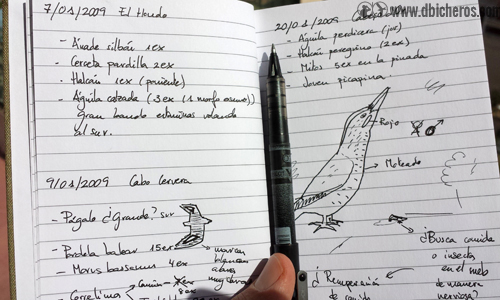 7/01/2009 El Hondo
- Ánade silbón 1ex
- Cerceta pardilla 2ex
- Halcón 1ex (poniente)
- Águila calzada (3ex (1 morfo oscuro))
Gran bando estorninos volando
al sur.
9/01/2009 Cabo Cervera
- Págalo ¿Grande? sur
- Pardela balear 15ex
- Morus bassanus 4ex
marcas
blancas
alares
- Correlimos
20/01/2009
- Águila perdicera (juv)
- Halcón peregrino (2ex)
- Mitos 5ex en la pinada
- Joven picapinos
Rojo
Moteado
¿Busca comida
o insectos
en el nido
de manera
nerviosa?
¿Recuperación
de comida
www.dbicheros.com